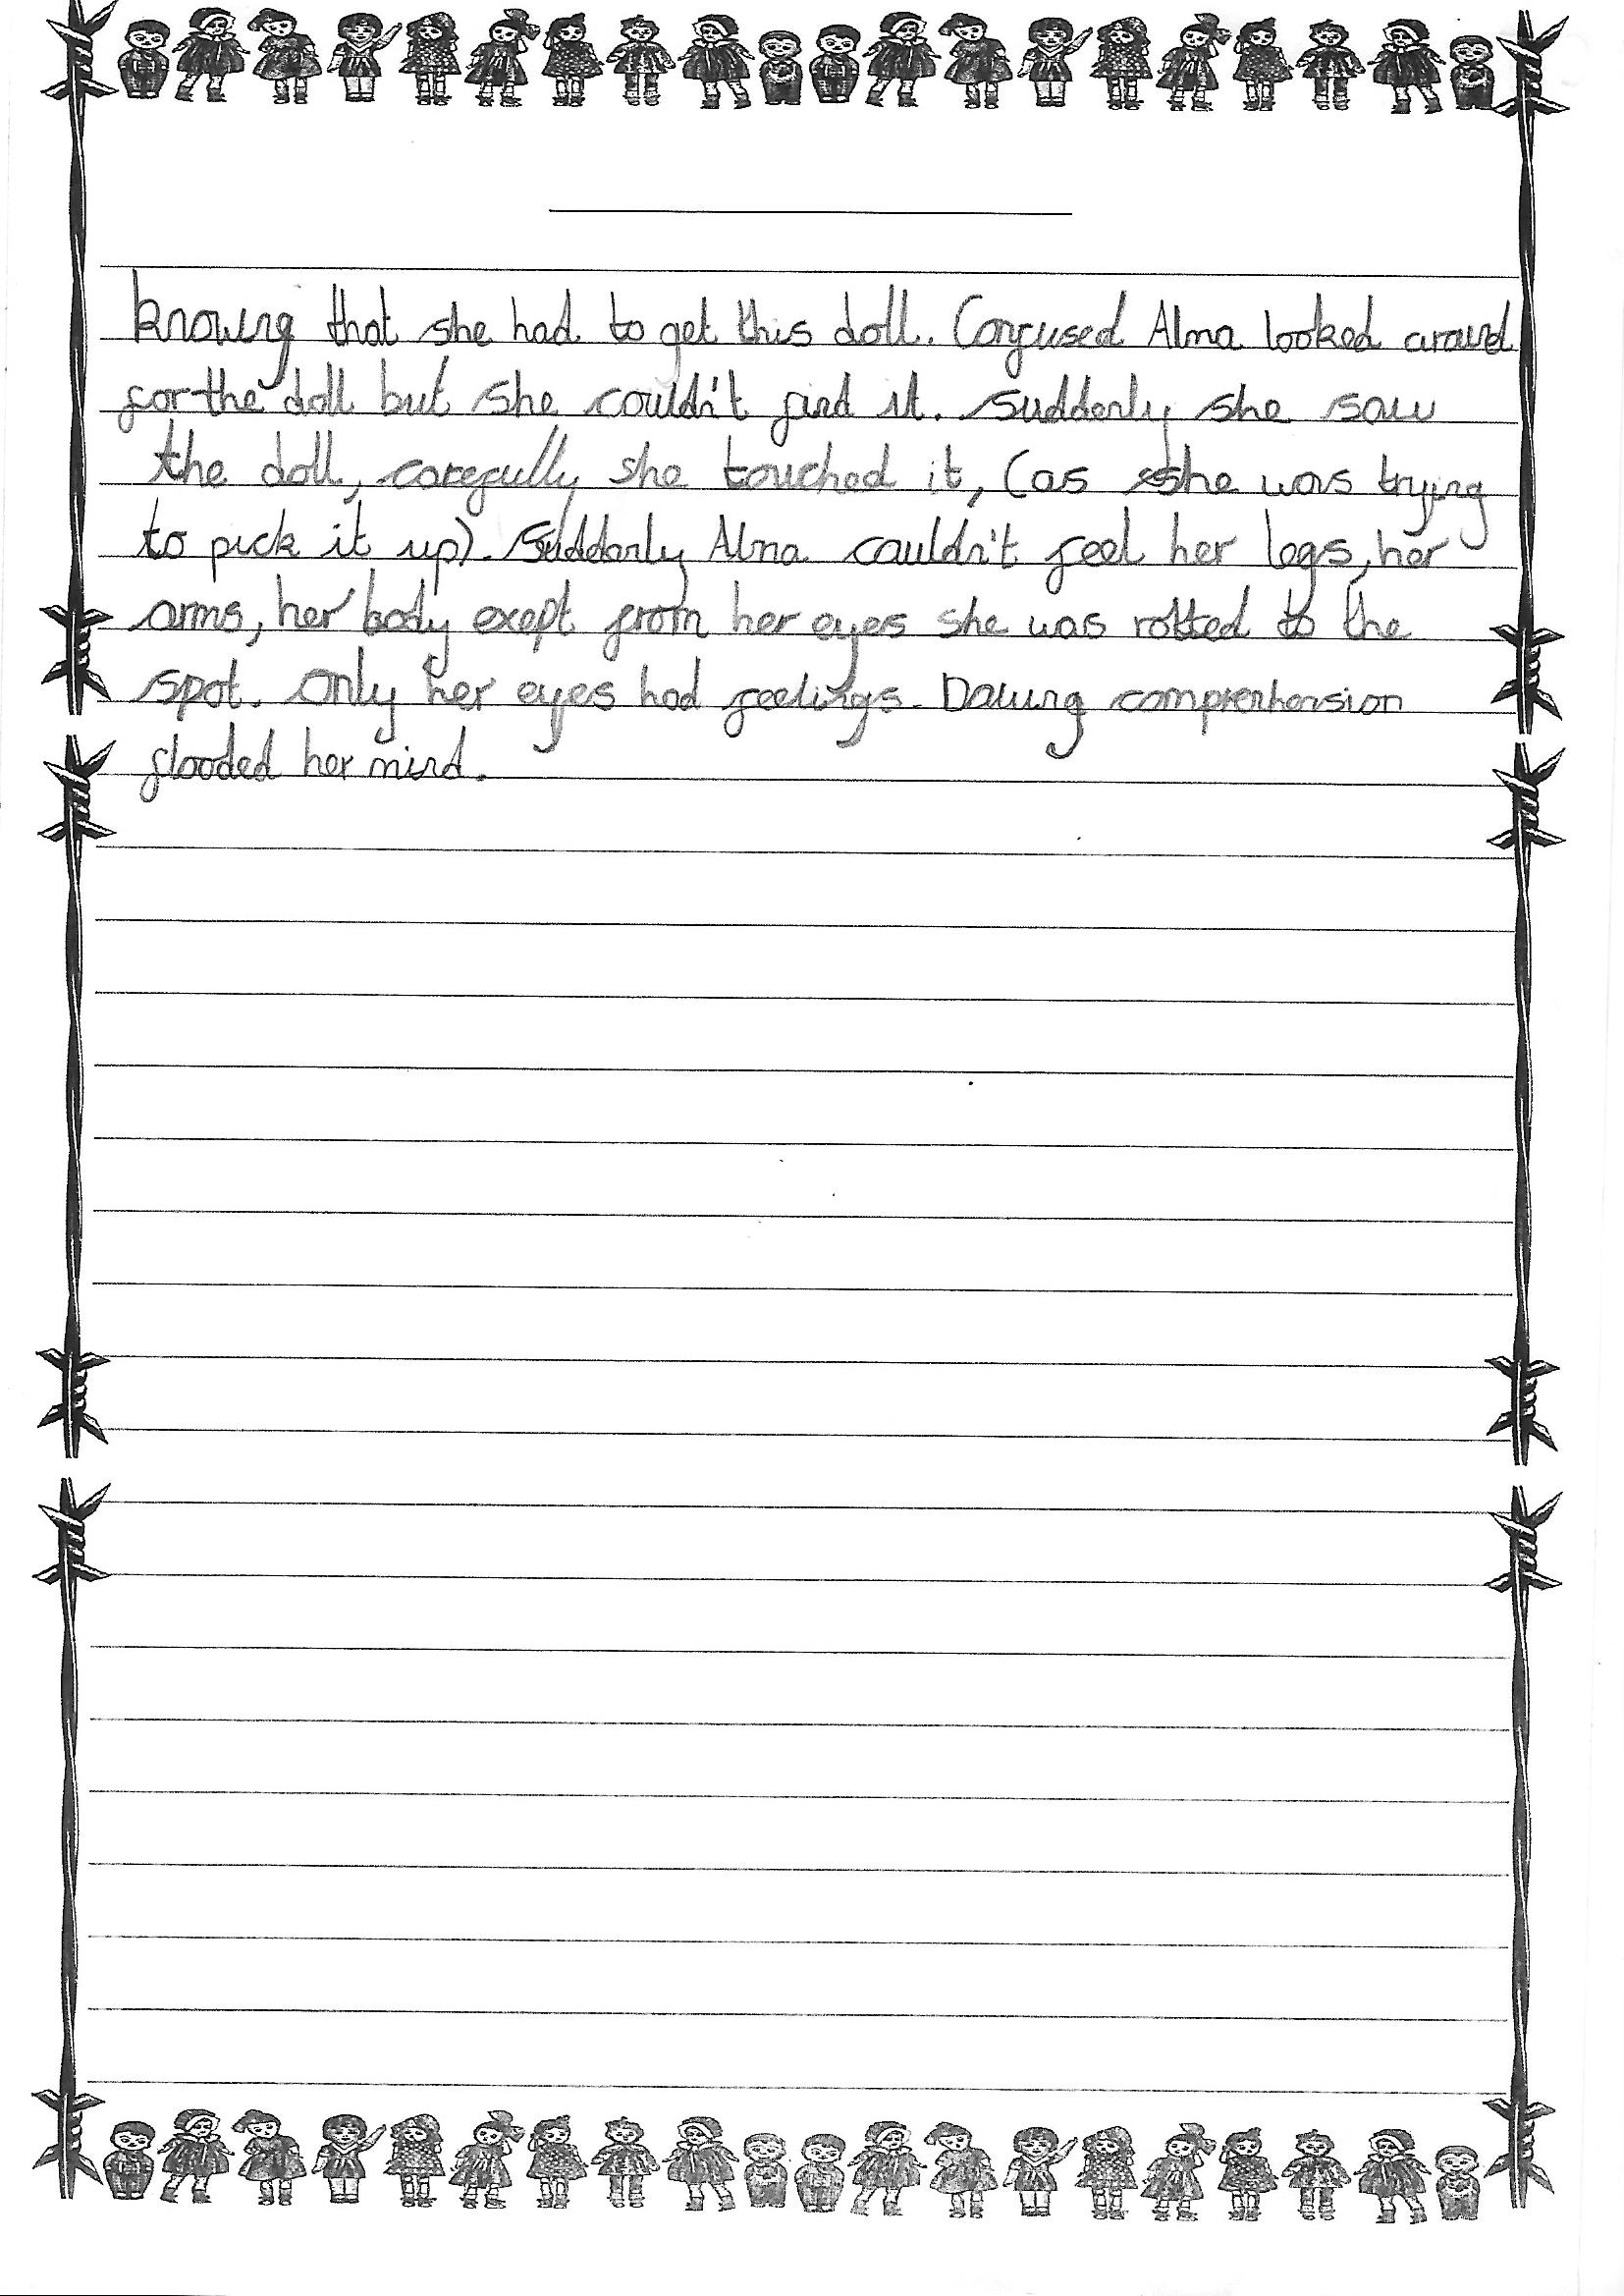 knowing that she had to get this doll. Confused Alma looked around
for the doll but she couldn't find it. Suddenly she saw
the doll, carefully she touched it, (as she was trying
to pick it up). Suddenly Alma couldn't feel her legs, her
arms, her body exept from her eyes she was rotted to the
spot. Only her eyes had feelings. Dawing comprehension
flooded her mind.